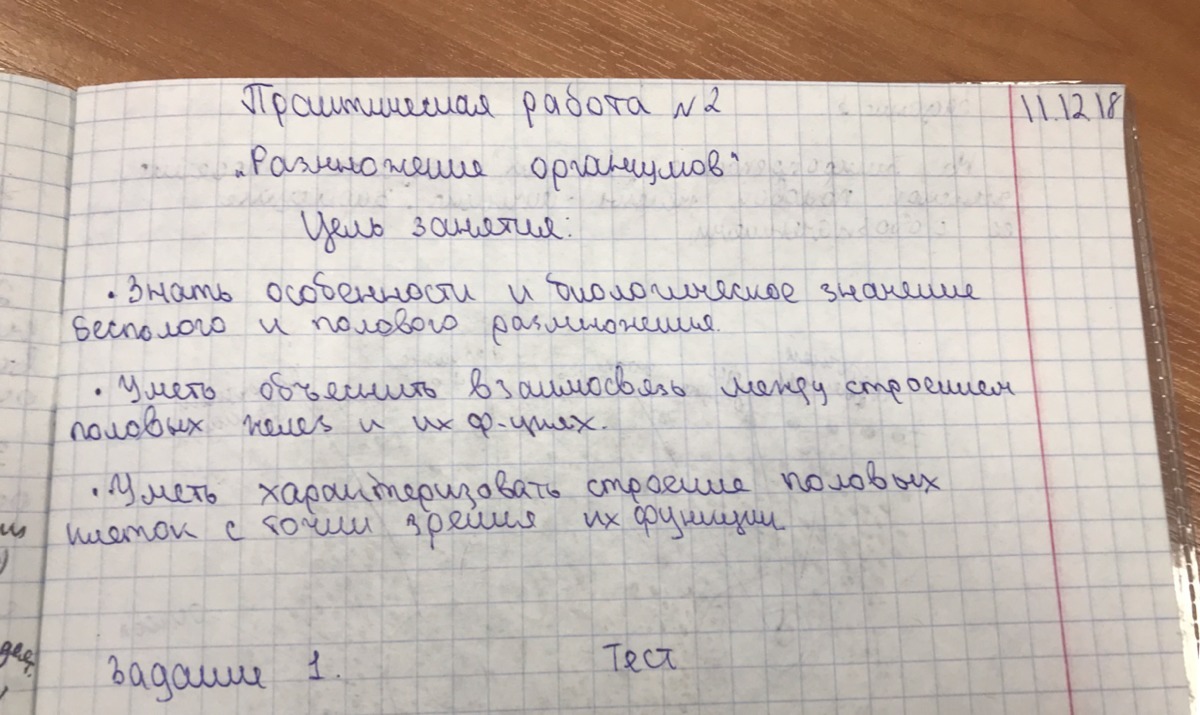 Практическая работа №2 11.12.18
„Размножение организмов"
Цель занятия:
• Знать особенности и биологическое значение
бесполого и полового размножения.
• Уметь объеснить взаимосвязь между строением
половых желез и их ф-циях.
• Уметь характеризовать строение половых
клеток с точки зрения их функции
Задание 1. Тест